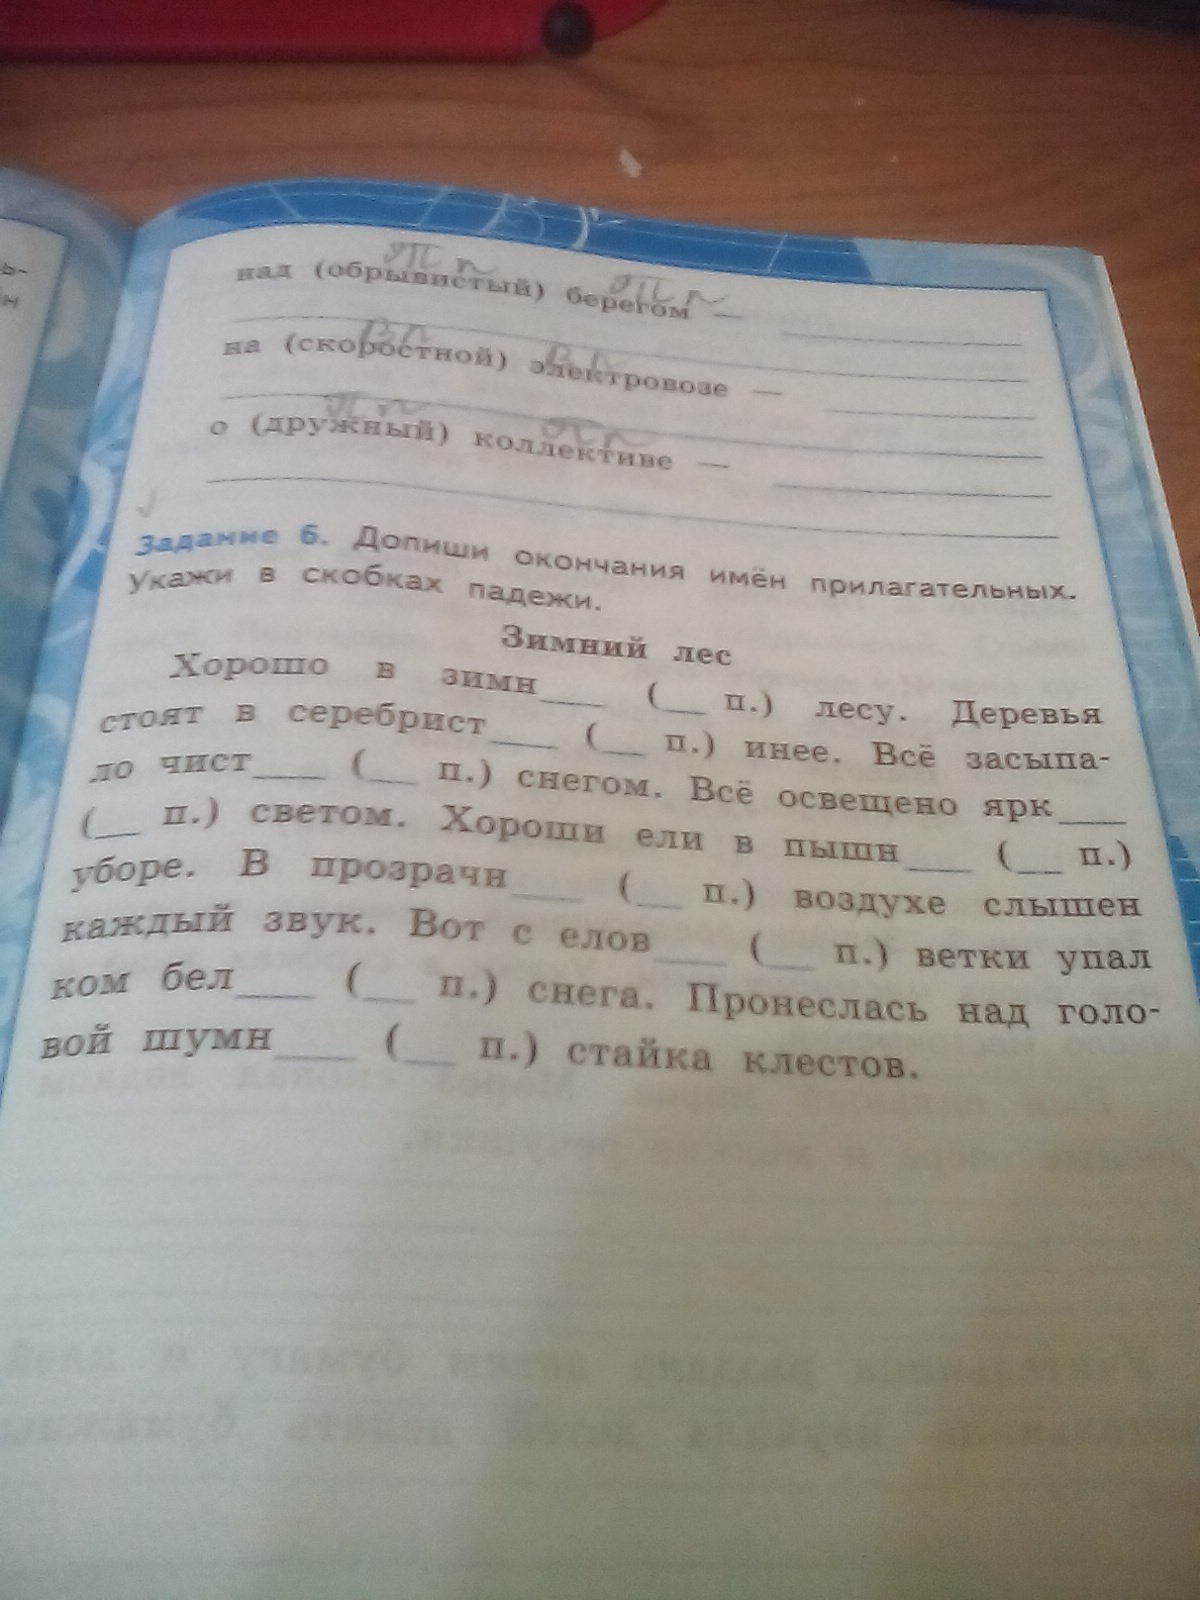 ь-
н
Т п Т п
над (обрывистый) берегом —
В п В п
на (скоростной) электровозе —
П п П п
о (дружный) коллективе —
Задание 6. Допиши окончания имён прилагательных.
Укажи в скобках падежи.
Зимний лес
Хорошо в зимн____ (__ п.) лесу. Деревья
стоят в серебрист____ (__ п.) инее. Всё засыпа-
ло чист____ (__ п.) снегом. Всё освещено ярк____
(__ п.) светом. Хороши ели в пышн____ (__ п.)
уборе. В прозрачн____ (__ п.) воздухе слышен
каждый звук. Вот с елов____ (__ п.) ветки упал
ком бел____ (__ п.) снега. Пронеслась над голо-
вой шумн____ (__ п.) стайка клестов.